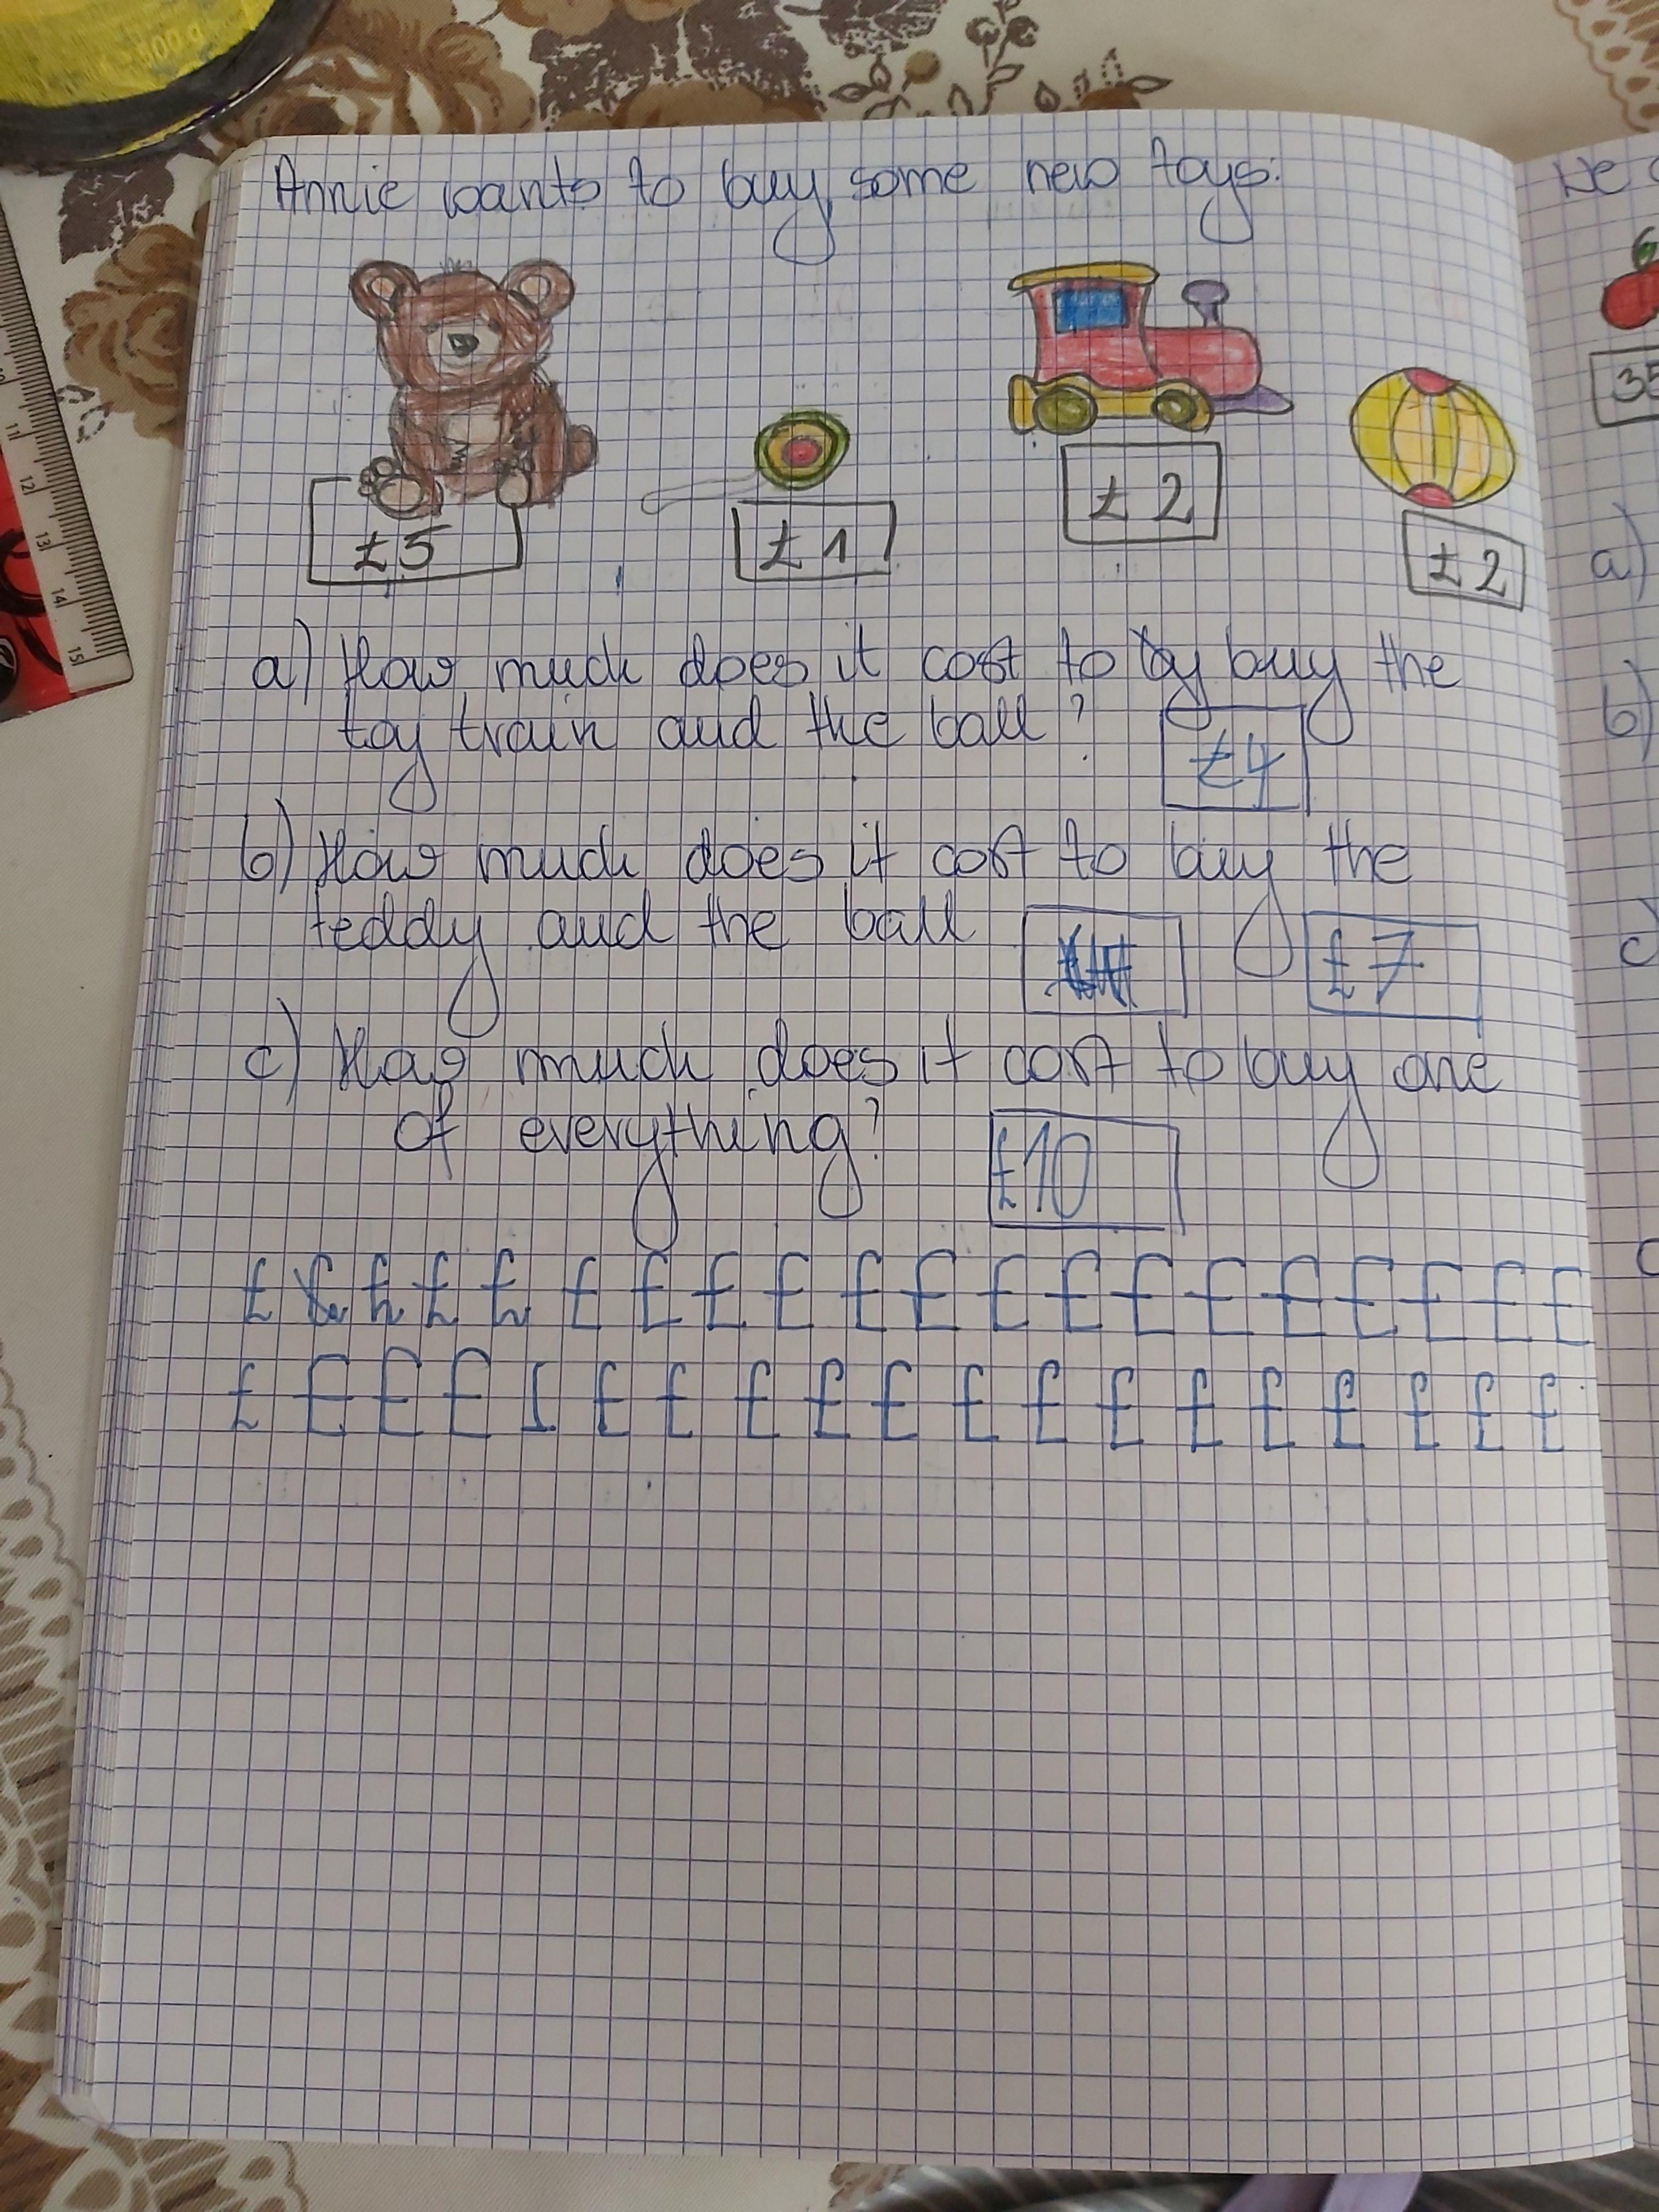 500 g
Annie wants to buy some new toys:
£5
£1
£2
£2
a) How much does it cost to by buy the
toy train and the ball?
£4
b) How much does it cost to buy the
teddy and the ball
£7
c) How much does it cost to buy one
of everything?
£10
£ £ £ £ £ £ £ £ £ £ £ £ £ £ £ £ £ £ £
£ £ £ £ £ £ £ £ £ £ £ £ £ £ £ £ £ £
11
12
13
14
15
We
35
a)
b)
c)